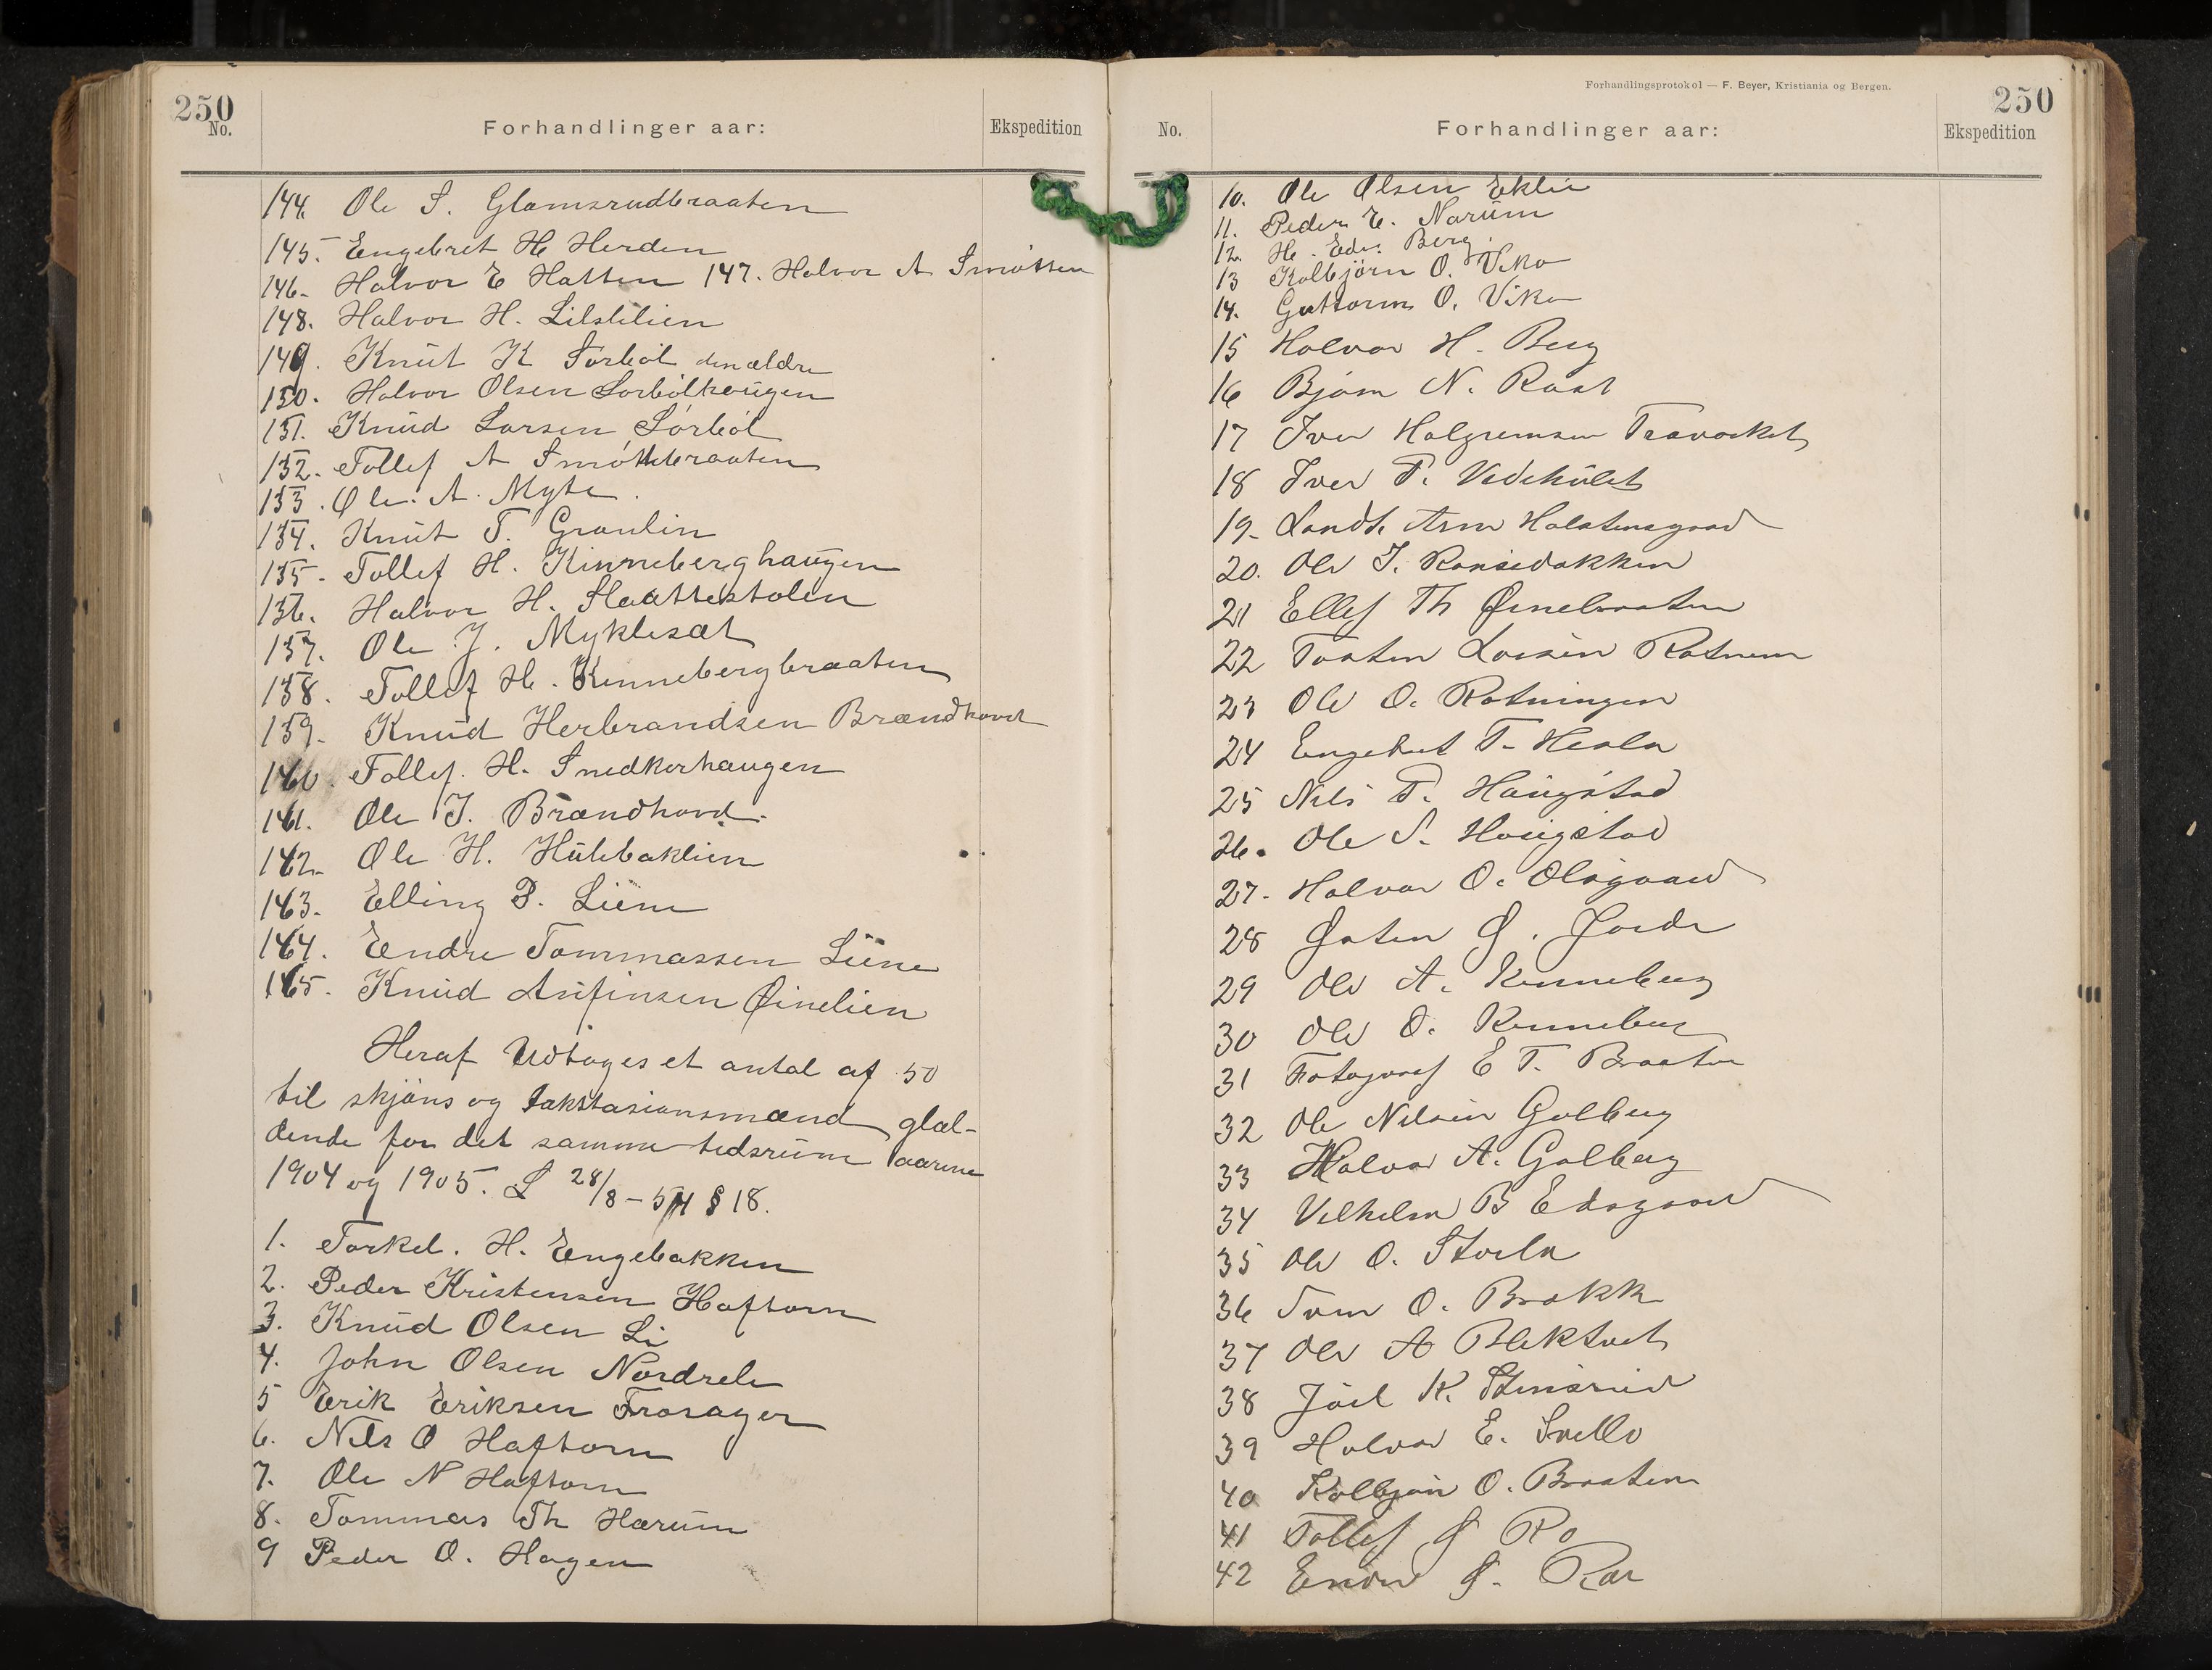 250
No.
Forhandlinger aar:
Ekspedition
144. Ole S. Glamsrudbraaten
145. Engebret H Herden
146. Halvor E Hatten 147. Halvor A Smøtten
148. Halvor H. Lilslilien
149. Knut K Sørbøl den ældre
150. Halvor Olsen Sørbølhaugen
151. Knud Larsen Sørbøl
152. Tollef A Smøttebraaten
153. Ole A. Myte.
154. Knut T. Grønlin
155. Tollef H. Kinneberghaugen
156. Halvor H. Slaattestolen
157. Ole J. Myklesæt
158. Tollef H. Kinnebergbraaten
159. Knud Herbrandsen Brændhovd
160. Tollef. H. Snedkerhaugen
161. Ole J. Brændhovd.
162. Ole H. Hulebaklien
163. Elling P. Liene
164. Endre Tommassen Liene
165. Knud Arfinsen Øinelien
Heraf Udtages et antal af 50
til skjøns og takstasionsmænd gjæl-
dende for det samme tidsrum aarene
1904 og 1905. L 28/8-54 § 18.
1. Torkel. H. Engebakken
2. Peder Kristensen Haftorn
3. Knud Olsen Li
4. John Olsen Nordrele
5 Erik Eriksen Frøsager
6. Nils O Haftorn
7. Ole N Haftorn
8. Tommas Th Harum
9 Peder O. Hagen
Forhandlingsprotokol — F. Beyer, Kristiania og Bergen.
250
No.
Forhandlinger aar:
Ekspedition
10. Ole Olsen Eklie
11. Peder E. Narum
12. H. Eds. Berg.
13 Kolbjørn O. Viko
14. Guttorm O. Viko
15 Halvor H. Berg
16 Bjørn N. Rust
17 Iver Halgrimsen Travaket
18 Iver T. Vedehølet
19. Landh. Arne Halstensgaard
20. Ole J. Ransedokken
21 Ellef Th Ørnebraaten
22 Tosten Larsen Rotneim
23 Ole O. Rotningen
24 Engebret T. Hesla
25 Nils T. Haugstad
26. Ole S. Haugstad
27. Halvor O. Olsgaard
28 Østen G. Jorde
29 Ole A. Kinneberg
30 Ole O. Kinneberg
31 Fotograf E T. Braaten
32 Ole Nilsen Golberg
33 Halvor A. Golberg
34 Vilhelm B Edsgaard
35 Ole O. Storla
36 Sven O. Brakke
37 Ole A Blektvet
38 Joel K. Stensrud
39 Halvor E. Svello
40 Kolbjøn O. Braaten
41 Tollef G Ro
42 Endre G. Roe